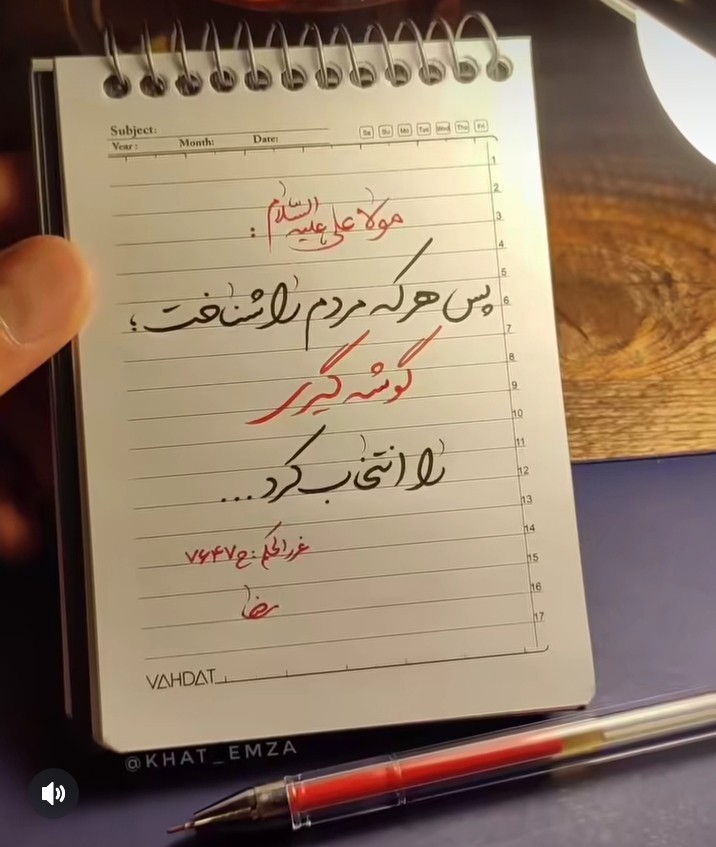 Subject:
Sa Su Mo Tue Wed Thu Fri
Year: Month: Date:
1
2
مولا علی علیه السلام :
3
4
5
پس هر که مردم را شناخت؛
6
7
8
گوشه گیری
9
10
11
را انتخاب کرد...
12
13
14
غررالحکم: ح ۷۶۴۷
15
رضا
16
17
VAHDAT
@KHAT_EMZA